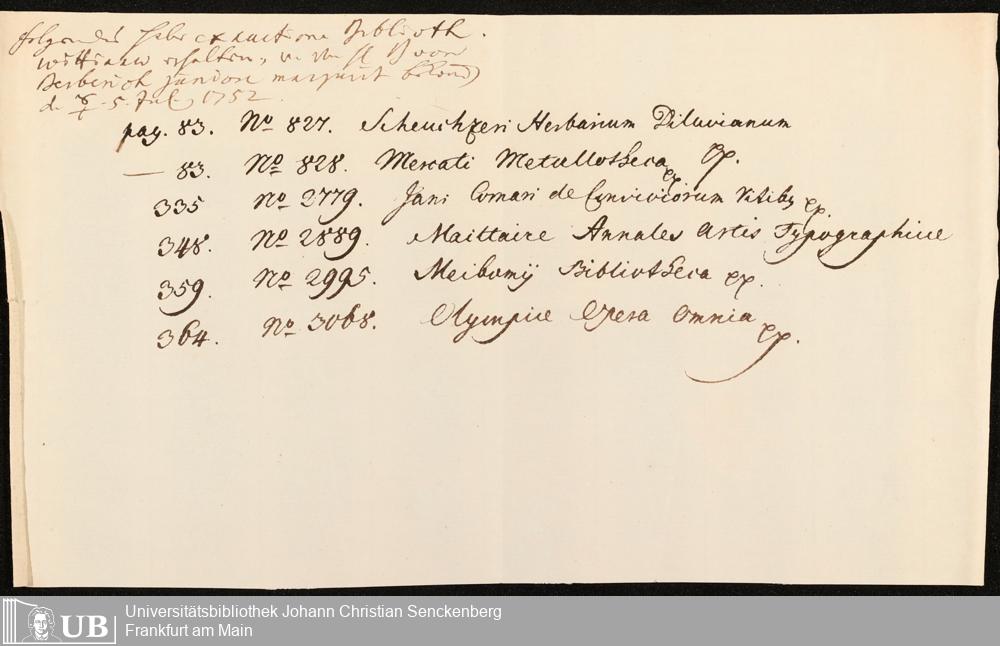 folgendes habe ex auctione Biblioth.
erhalten, v.
Berberich
d. 5. Jul. 1752.
pag. 83. No 827. Scheuchzeri Herbarium Diluvianum
— 83. No 828. Mercati Metallotheca ꝛc.
335 No 2779. Jani Cornari de Conviviorum Ritibus ꝛc.
348. No 2889. Maittaire Annales Artis Typographicae
359. No 2995. Meibomij Bibliotheca ꝛc.
364. No 3068. Olympiae Opera Omnia ꝛc.
UB
Universitätsbibliothek Johann Christian Senckenberg
Frankfurt am Main